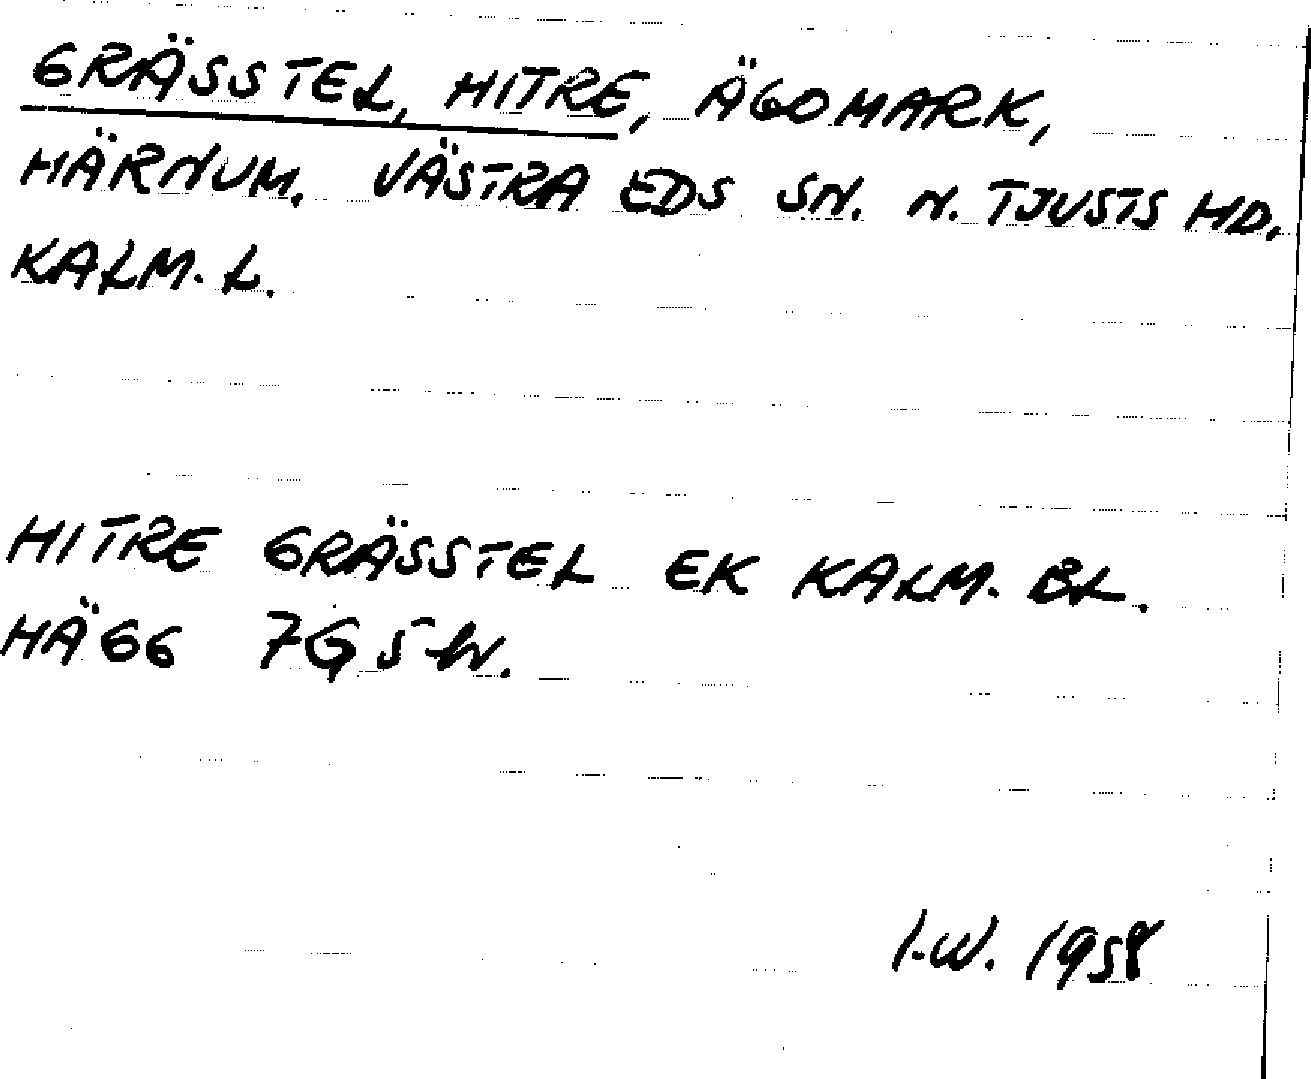 GRÄSSTEL, HITRE, ÄGOMARK,
HÄRNUM. VÄSTRA EDS SN. N. TJUSTS HD.
KALM. L.
HITRE GRÄSSTEL EK KALM. BL.
HÄGG 7G S W.
I.W. 1958